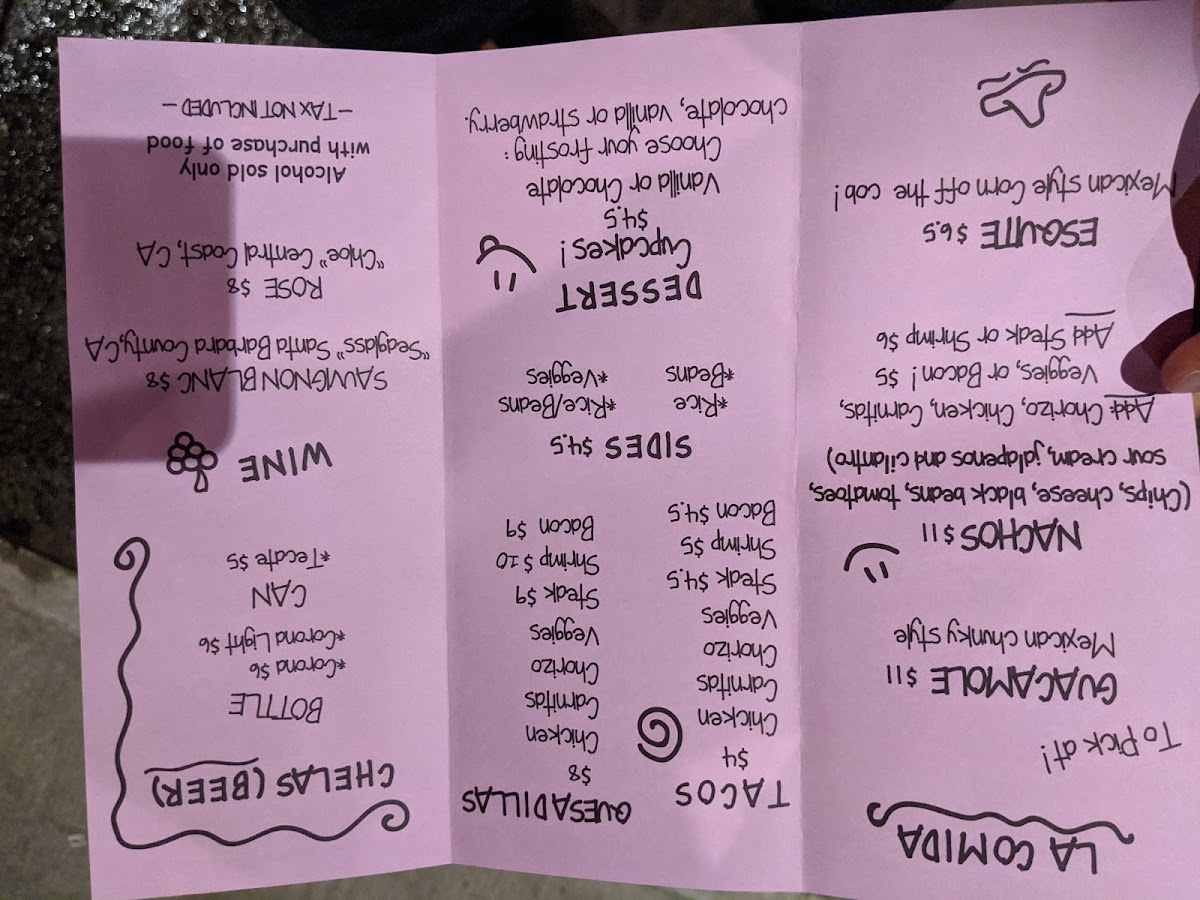 LA COMIDA
To Pick at!
GUACAMOLE $11
Mexican chunky style
NACHOS $11
(Chips, cheese, black beans, tomatoes,
sour cream, jalapenos and cilantro)
Add Chorizo, Chicken, Carnitas,
Veggies, or Bacon! $5
Add Steak or Shrimp $6
ESQUITE $6.5
Mexican style Corn off the cob!
TACOS
$4
Chicken
Carnitas
Chorizo
Veggies
Steak $4.5
Shrimp $5
Bacon $4.5
QUESADILLAS
$8
Chicken
Carnitas
Chorizo
Veggies
Steak $9
Shrimp $10
Bacon $9
SIDES $4.5
*Rice *Rice/Beans
*Beans *Veggies
DESSERT
Cupcakes!
$4.5
Vanilla or Chocolate
Choose your frosting:
chocolate, vanilla or strawberry.
CHELAS (BEER)
BOTTLE
*Corona $6
*Corona Light $6
CAN
*Tecate $5
WINE
SAUVIGNON BLANC $8
"Seaglass" Santa Barbara County, CA
ROSE $8
"Chloe" Central Coast, CA
Alcohol sold only
with purchase of food
- TAX NOT INCLUDED -